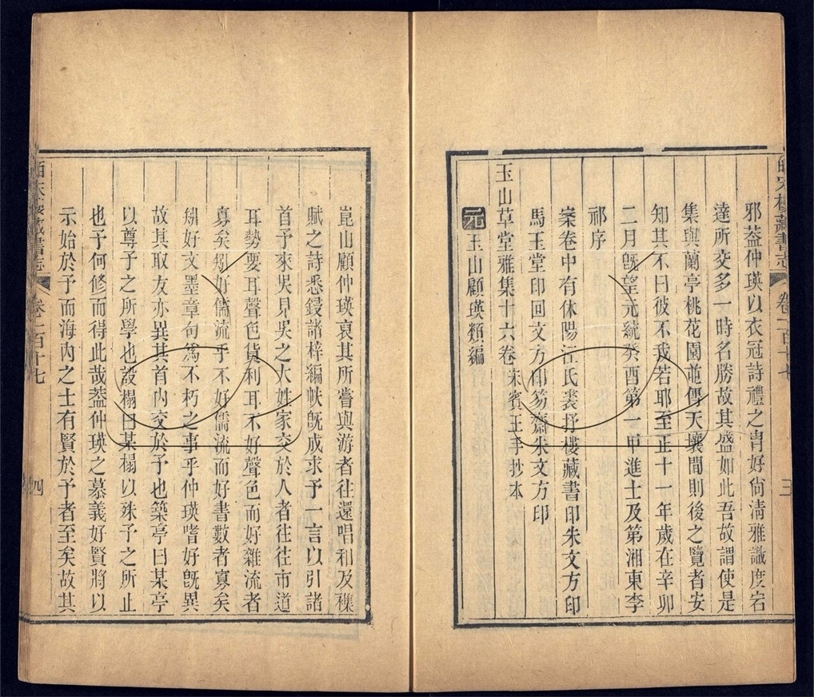 皕宋樓藏書志
卷一百十七
三
邪葢仲瑛以衣冠詩禮之胄好尙淸雅識度宕
達所交多一時名勝故其盛如此吾故謂使是
集與蘭亭桃花園並傳天壤間則後之覽者安
知其不曰彼不我若耶至正十一年歲在辛卯
二月旣望元統癸酉第一甲進士及第湘東李
祁序
案卷中有休陽汪氏裘抒樓藏書印朱文方印
馬玉堂印回文方印笏齋朱文方印
玉山草堂雅集十六卷朱賓王手抄本
元玉山顧瑛類編
崑山顧仲瑛裒其所嘗與游者往還唱和及襍
賦之詩悉鋟諸梓編帙旣成求予一言以引諸
首予來吳見吳之大姓家交於人者往往市道
耳勢要耳聲色貨利耳不好聲色而好雜流者
寡矣矧好儒流乎不好儒流而好書數者寡矣
矧好文墨章句為不朽之事乎仲瑛嗜好旣異
故其取友亦異其首內交於予也築亭曰某亭
以尊予之所學也設榻曰某榻以殊予之所止
也予何修而得此哉葢仲瑛之慕義好賢將以
示始於予而海內之士有賢於予者至矣故其
皕宋樓藏書志
卷一百十七
四